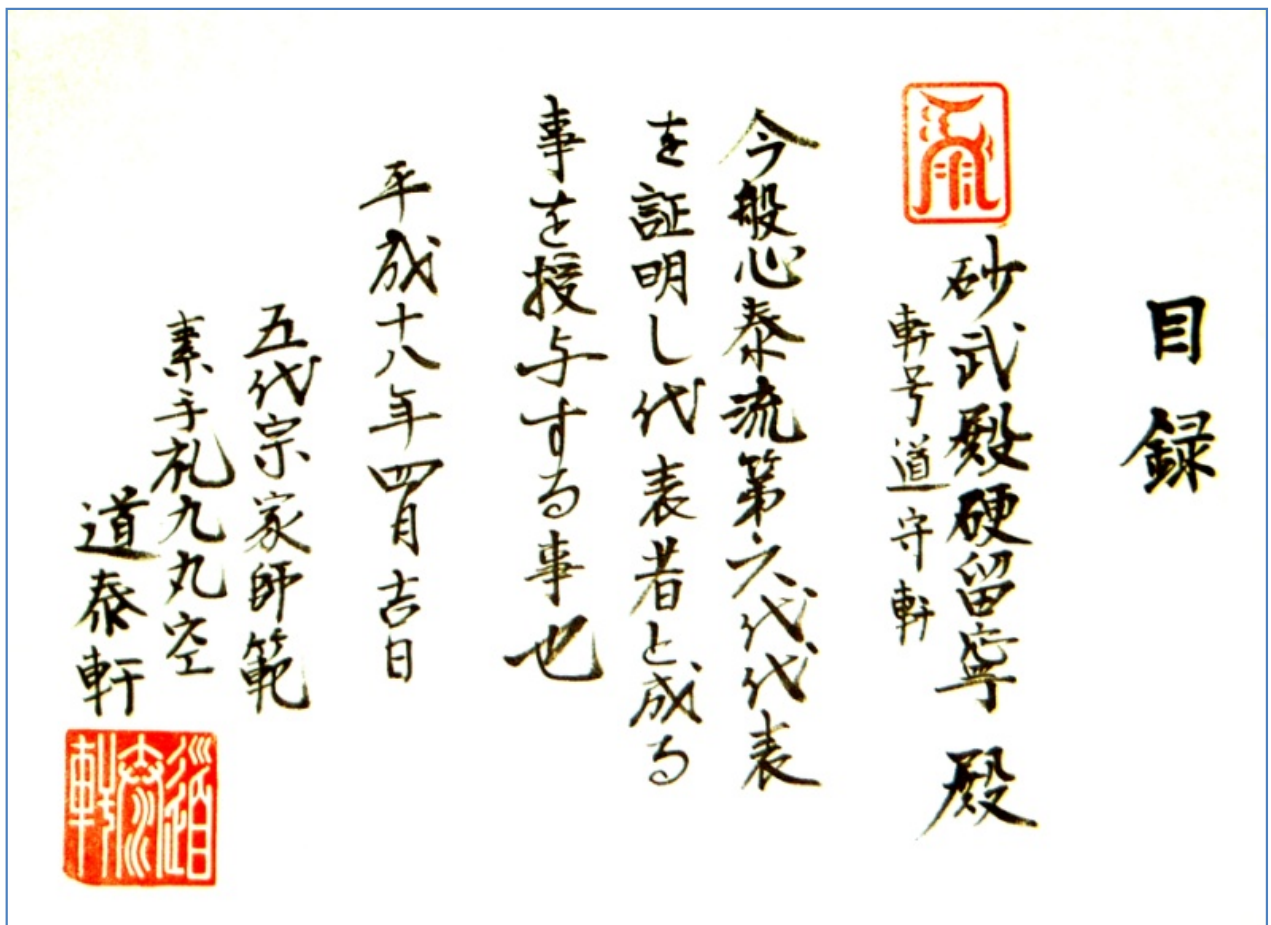 目録
砂武殿硬留寧 殿
軒号道守軒
今般心泰流第六代代表
を証明し代表者と成る
事を授与する事也
平成十八年四月吉日
五代宗家師範
素手札九丸空
道泰軒
道泰軒